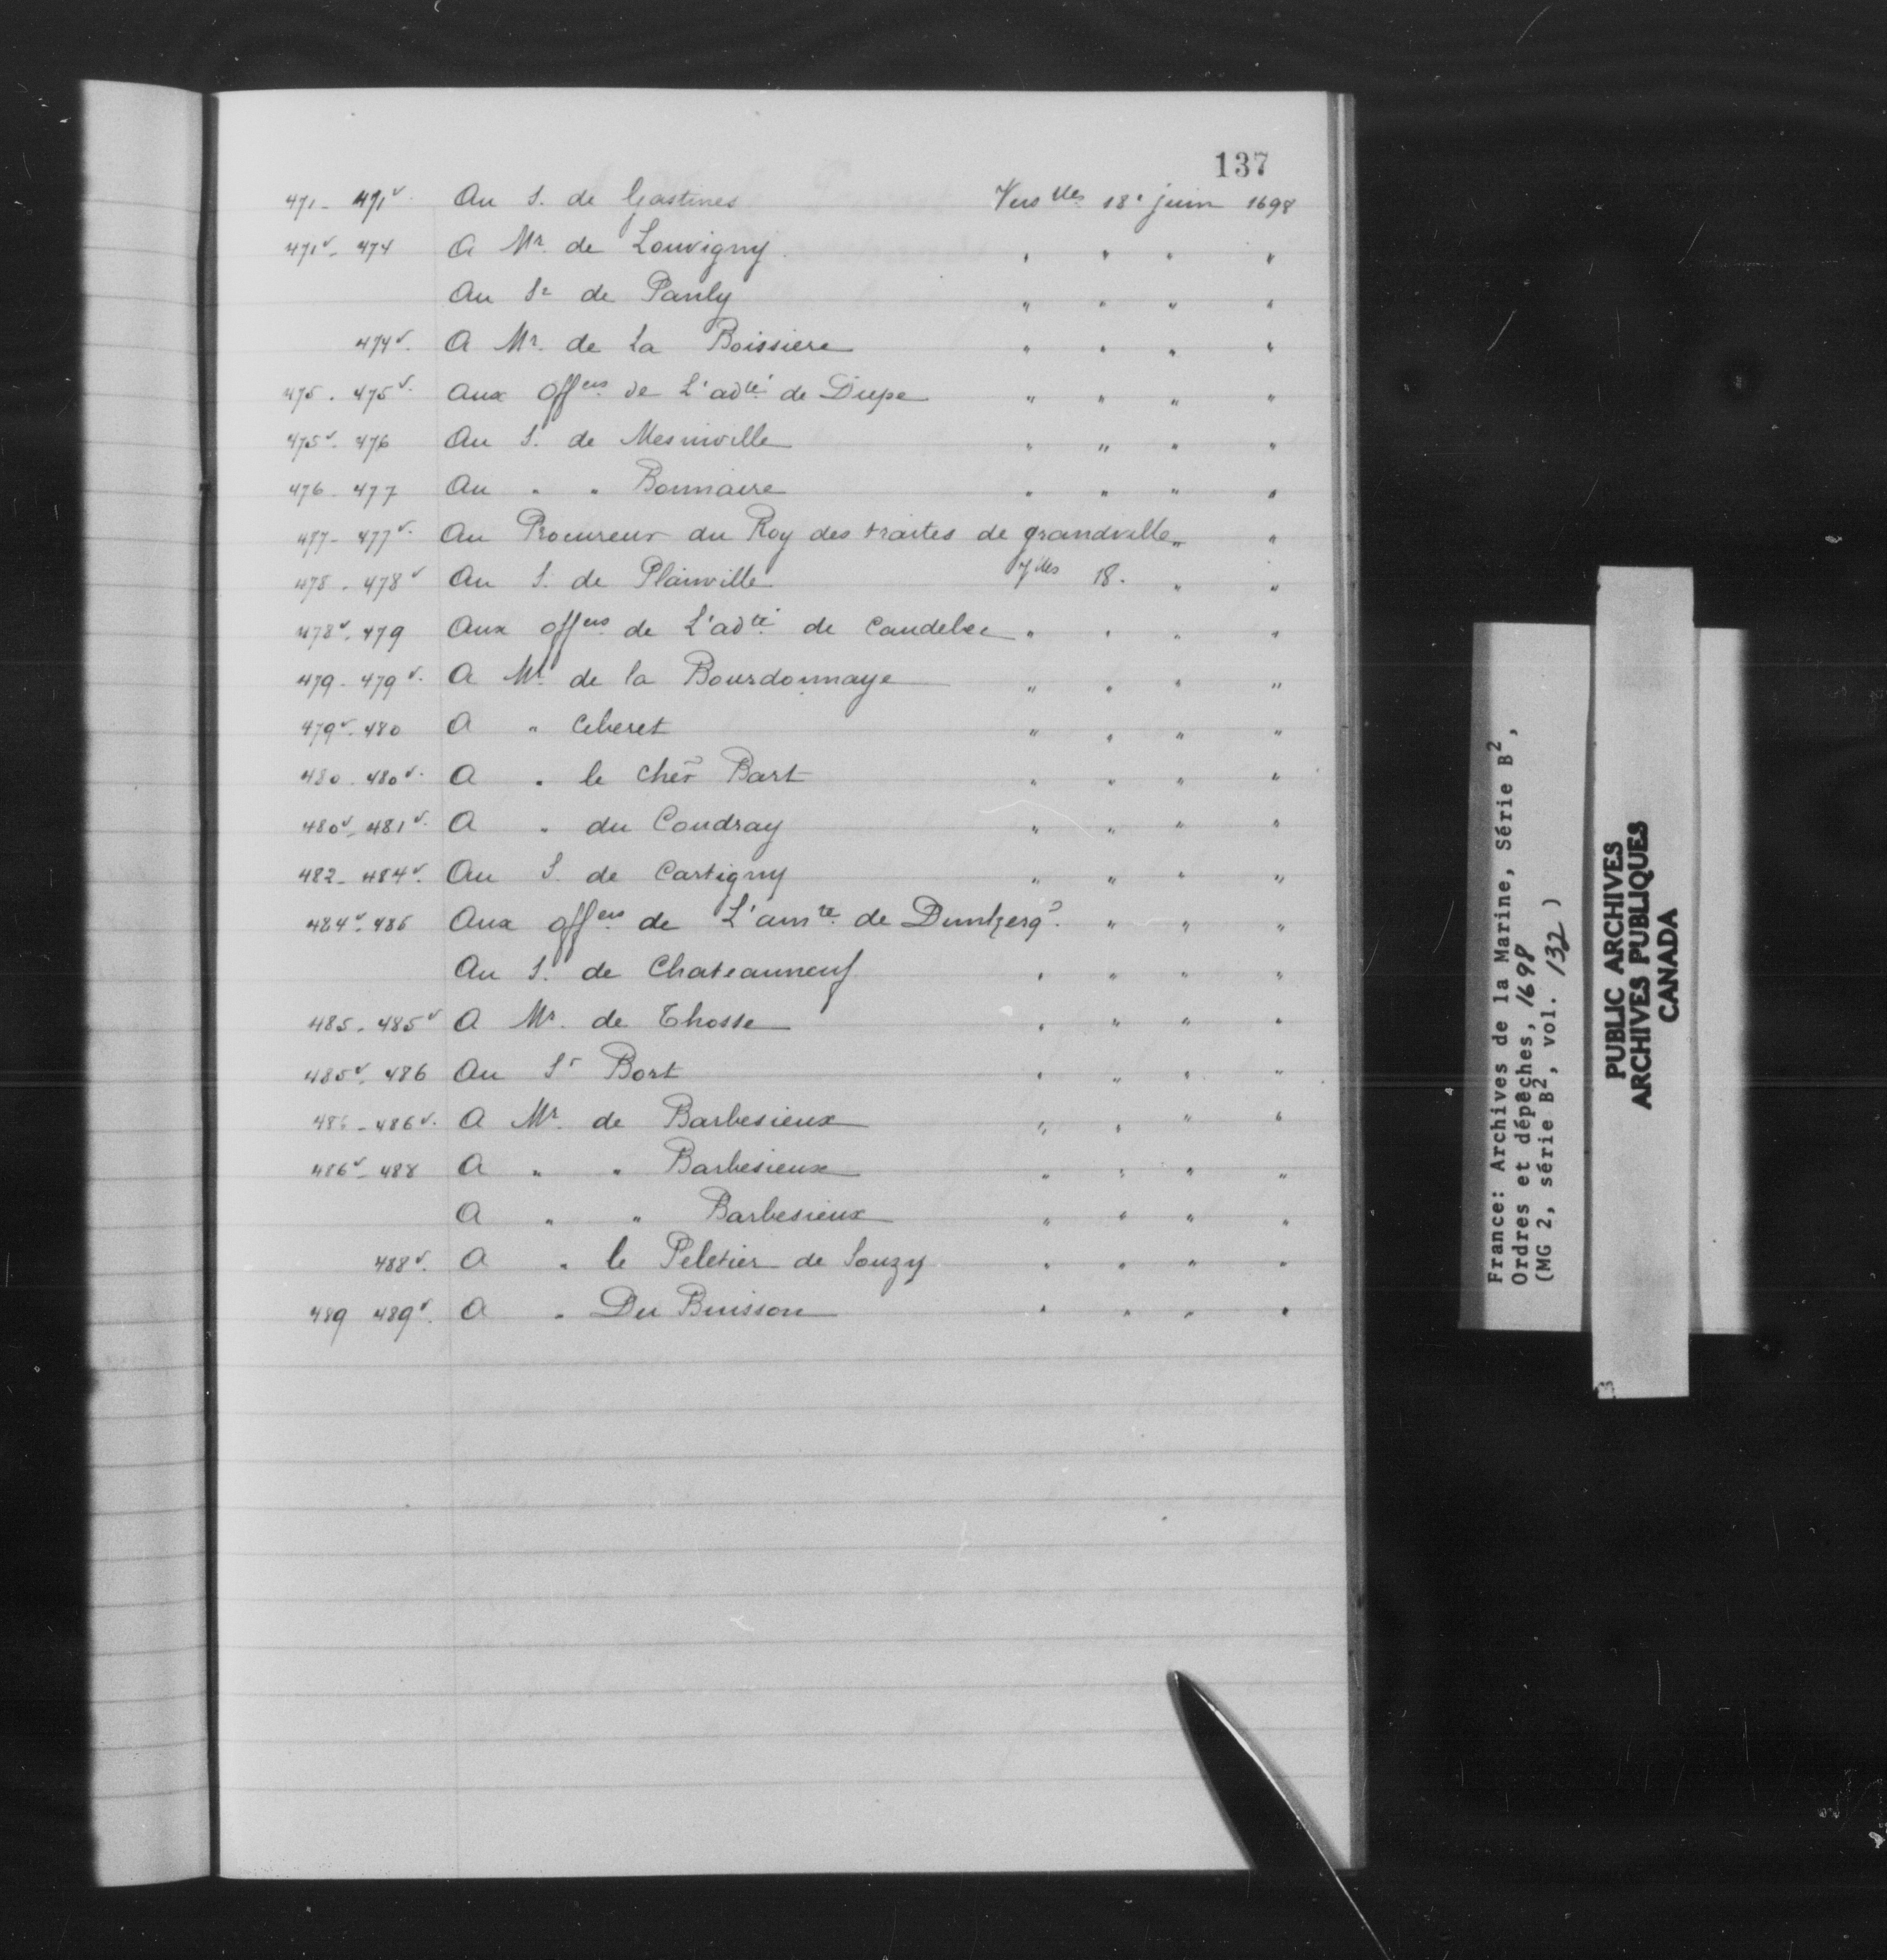 137
471 - 471v. Au S. de Gastines Verslles 18e juin 1698
471v - 474 A Mr. de Louvigny " " " "
Au Sr de Pauly " " " "
474v. A Mr. de La Boissiere " " " "
475 - 475v. Aux offers de L'adté de Diepe " " " "
475v - 476 Au S. de Mesniville " " " "
476 - 477 Au " " Bonnaire " " " "
477 - 477v. Au Procureur du Roy des traites de grandville " "
478 - 478v Au S. de Plainville Vlles 18. " "
478v - 479 Aux offers de L'adté de Caudebec " " " "
479 - 479v. A Mr. de la Bourdonnaye " " " "
479v - 480 A " Ceberet " " " "
480 - 480v. A " le cher Bart " " " "
480v - 481v. A " du Coudray " " " "
482 - 484v. Au S. de Cartigny " " " "
484v - 485 Aux offers de L'amté de Dunkerq? " " "
Au S. de Chateauneuf " " " "
485 - 485v A Mr. de Thosse " " " "
485v - 486 Au Sr Bort " " " "
486 - 486v. A Mr. de Barbesieux " " " "
486v - 488 A " " Barbesieux " " " "
A " " Barbesieux " " " "
488v. A " le Peletier de Souzy " " " "
489 489v. A " Du Buisson " " " "
France: Archives de la Marine, Série B2,
Ordres et dépêches, 1698
(MG 2, série B2, vol. 132)
PUBLIC ARCHIVES
ARCHIVES PUBLIQUES
CANADA